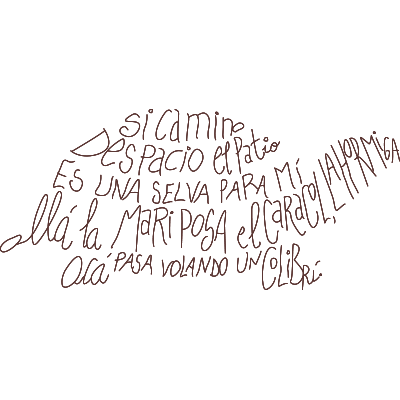 Si camino
Despacio el patio
ES UNA SELVA PARA MÍ
allá la MARIPOSA el CARACOL, LA HORMIGA
Acá PASA VOLANDO UN COLIBRÍ.